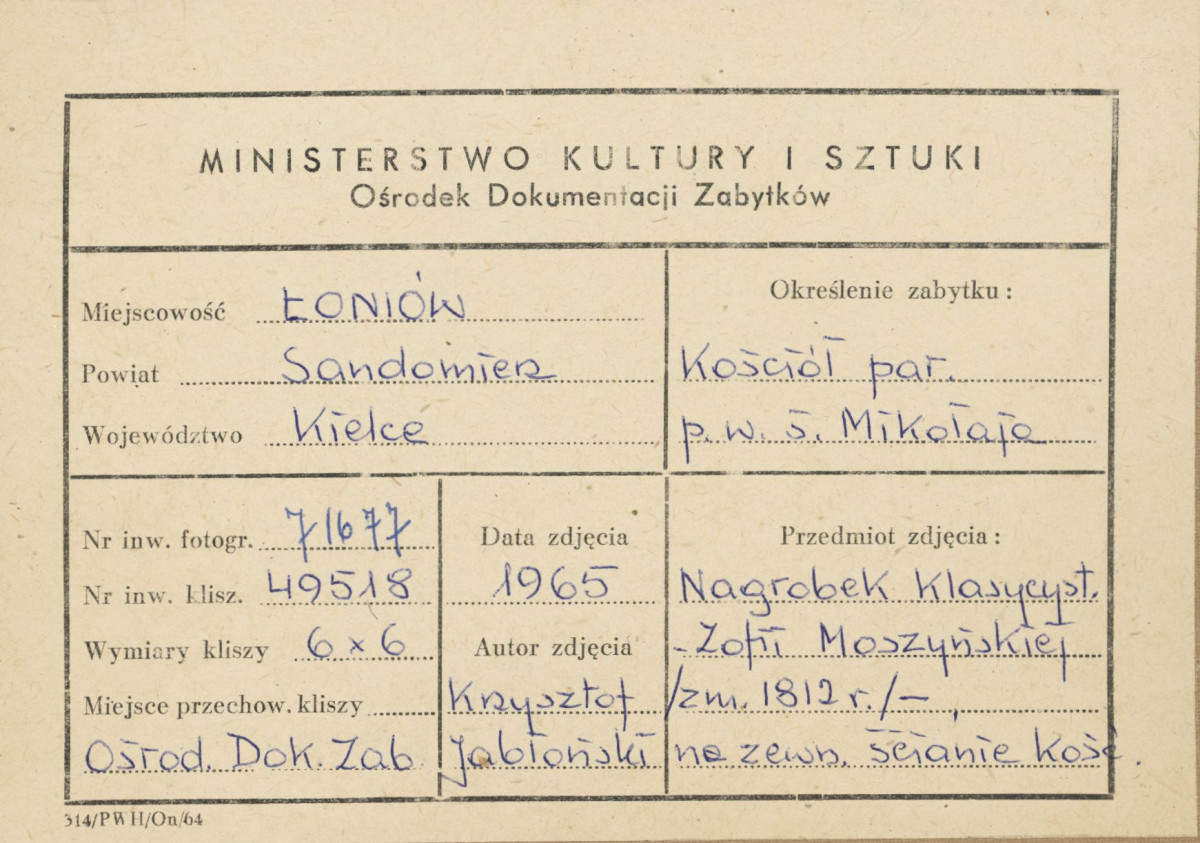 MINISTERSTWO KULTURY I SZTUKI
Ośrodek Dokumentacji Zabytków
Miejscowość ŁONIÓW
Powiat Sandomierz
Województwo Kielce
Określenie zabytku:
Kościół par.
p.w. ś. Mikołaja
Nr inw. fotogr. 71677
Nr inw. klisz. 49518
Wymiary kliszy 6 x 6
Miejsce przechow. kliszy
Ośrod. Dok. Zab
Data zdjęcia
1965
Autor zdjęcia
Krzysztof
Jabłoński
Przedmiot zdjęcia:
Nagrobek klasycyst.
- Zofii Moszyńskiej
/zm. 1812 r./ -,
na zewn. ścianie kość.
314/PWH/On/64